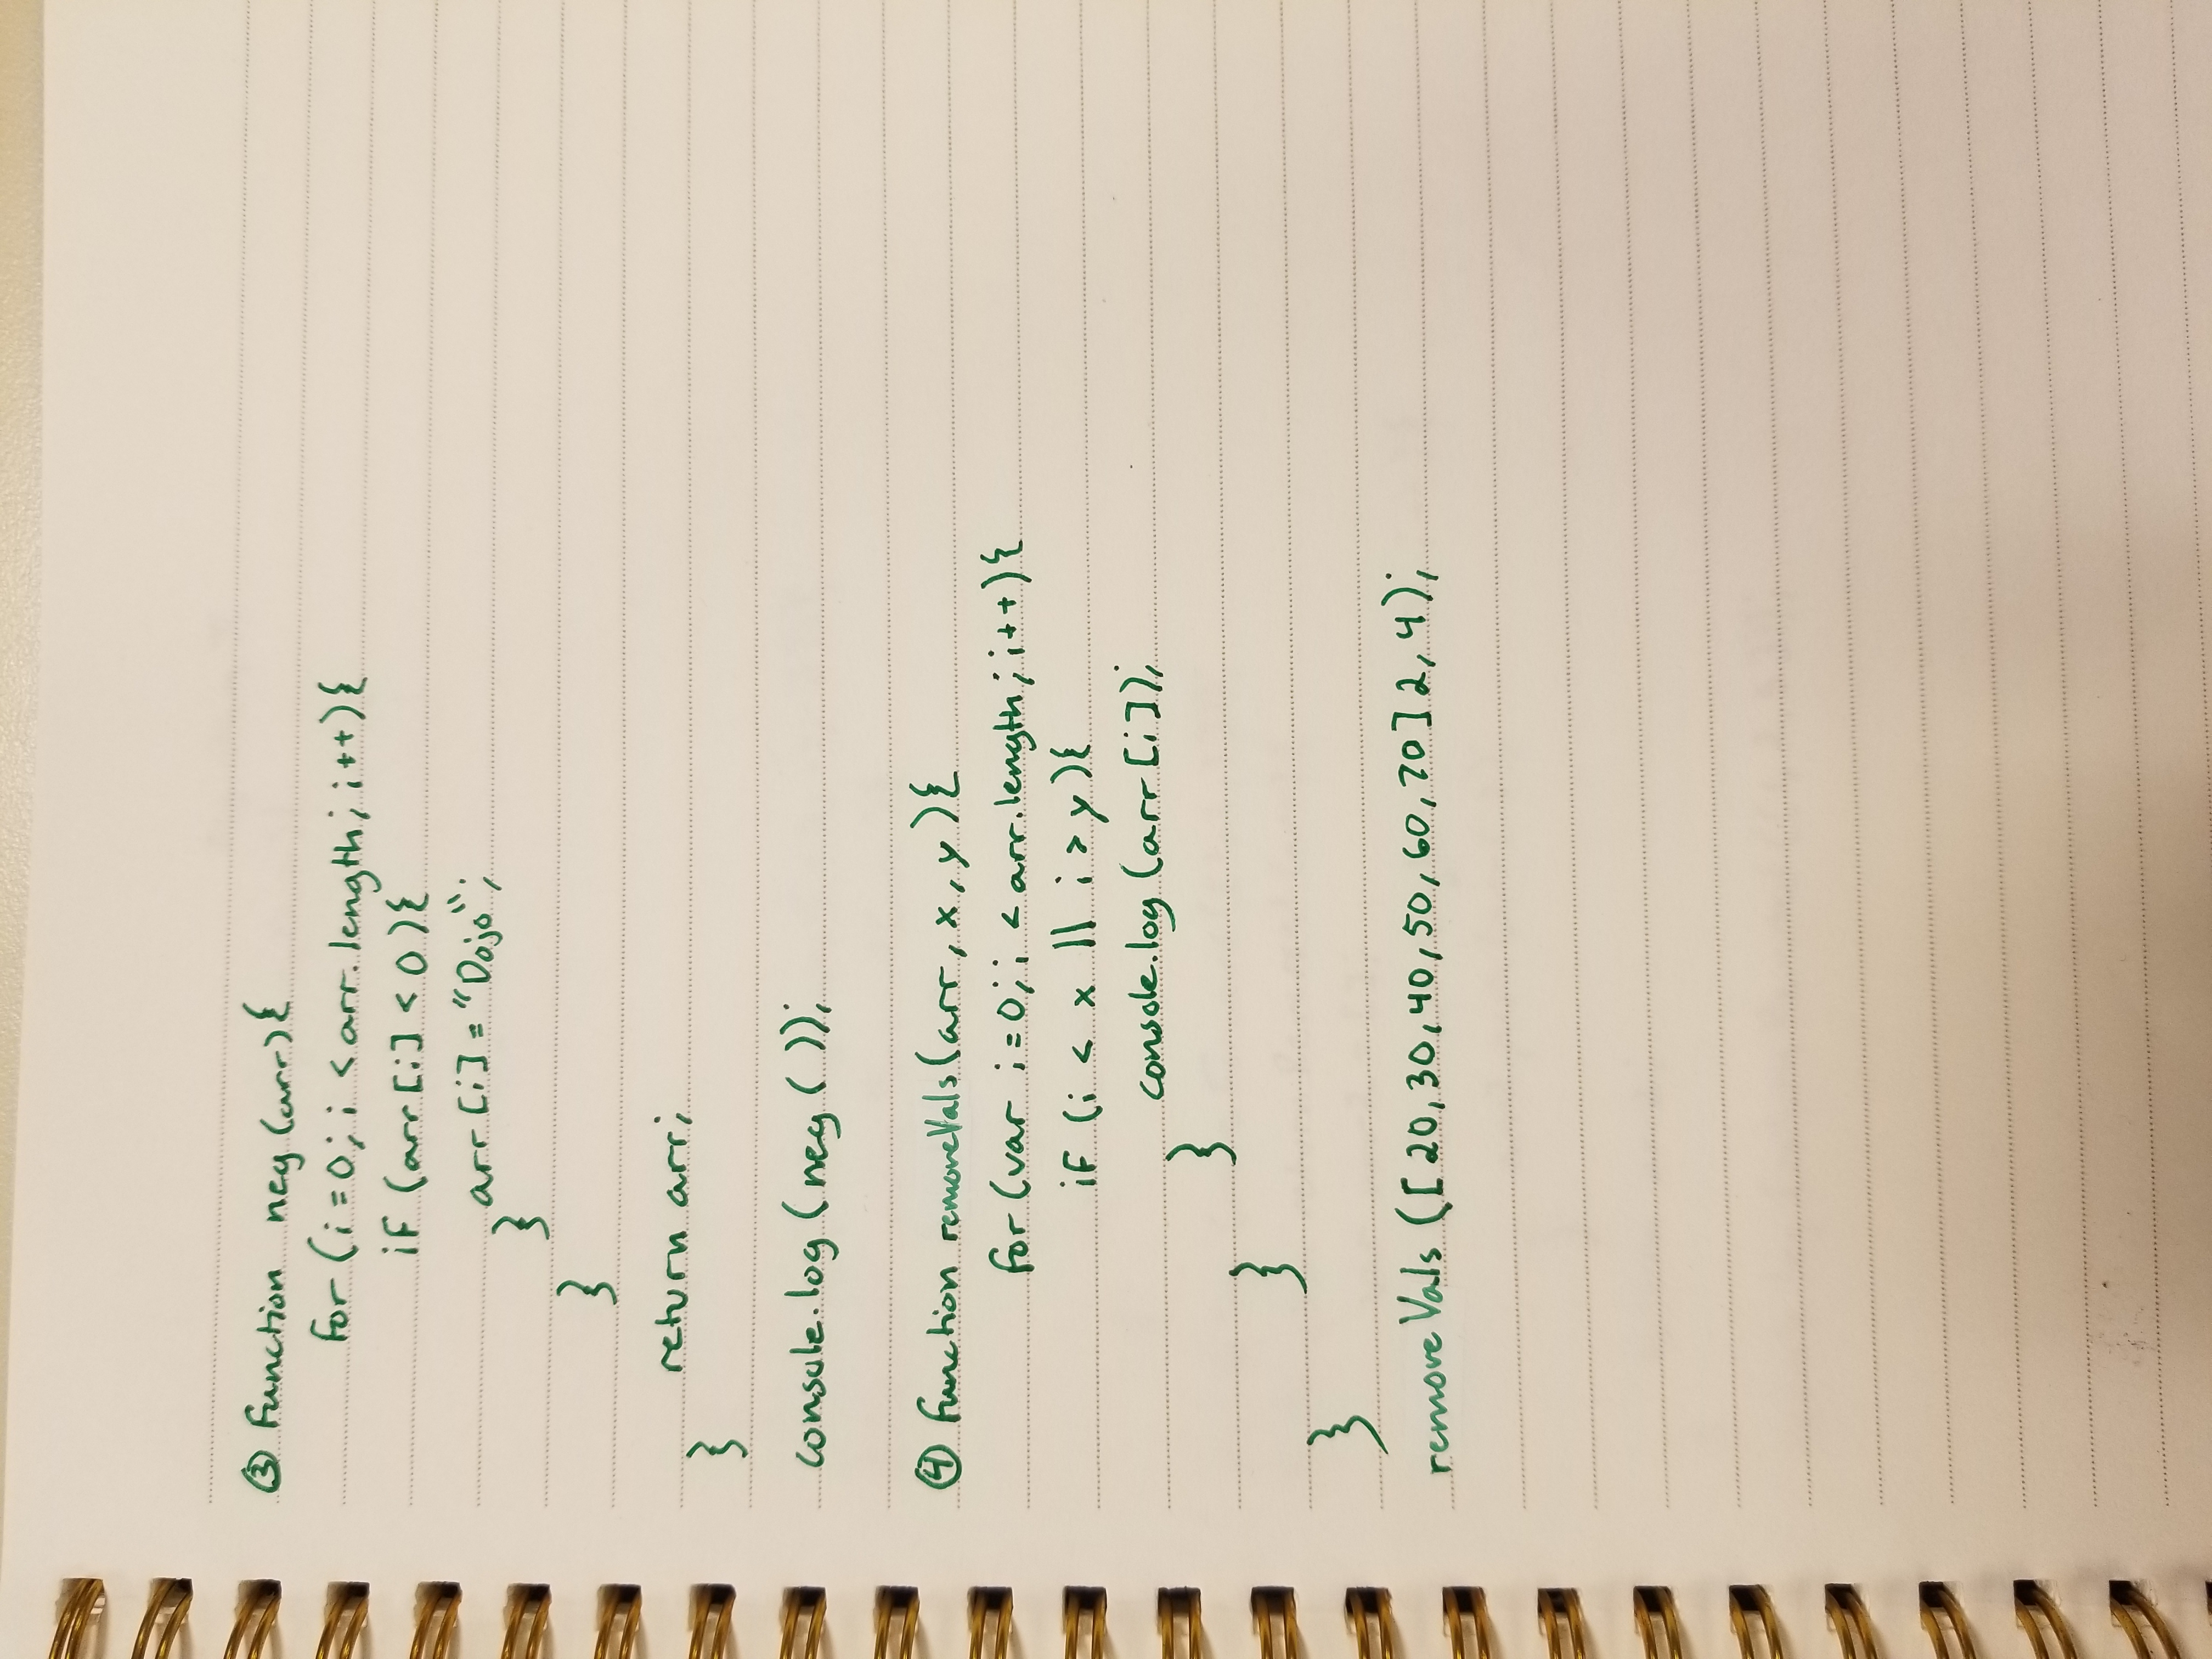 ③ Function neg (arr){
for (i=0; i < arr.length; i++){
if (arr[i] < 0){
arr[i] = "Dojo";
}
}
return arr;
}
console.log (neg ( ));
④ function removeVals (arr, x, y){
for (var i=0; i < arr.length; i++){
if (i < x || i > y){
console.log (arr[i]);
}
}
}
removeVals ([20,30,40,50,60,70] 2, 4);